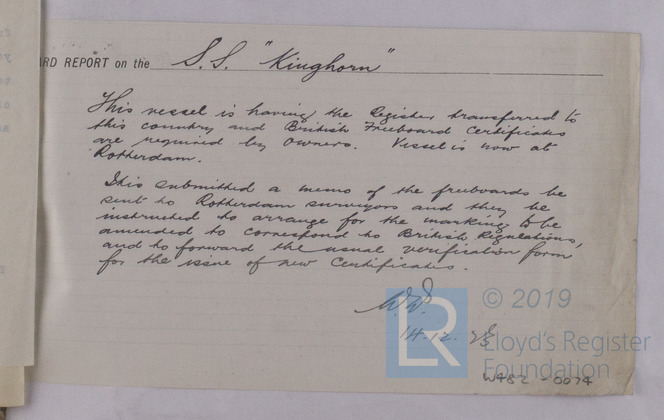 ARD REPORT on the S.S. "Kinghorn"
This vessel is having the Register transferred to
this country and British Freeboard Certificates
are required by Owners. Vessel is now at
Rotterdam.
It is submitted a memo of the freeboards be
sent to Rotterdam surveyors and they be
instructed to arrange for the marking to be
amended to correspond to British Regulations,
and to forward the usual verification form
for the issue of new Certificates.
W.W.
14.12.
© 2019
LR
Lloyd's Register
Foundation
W482 - 0074